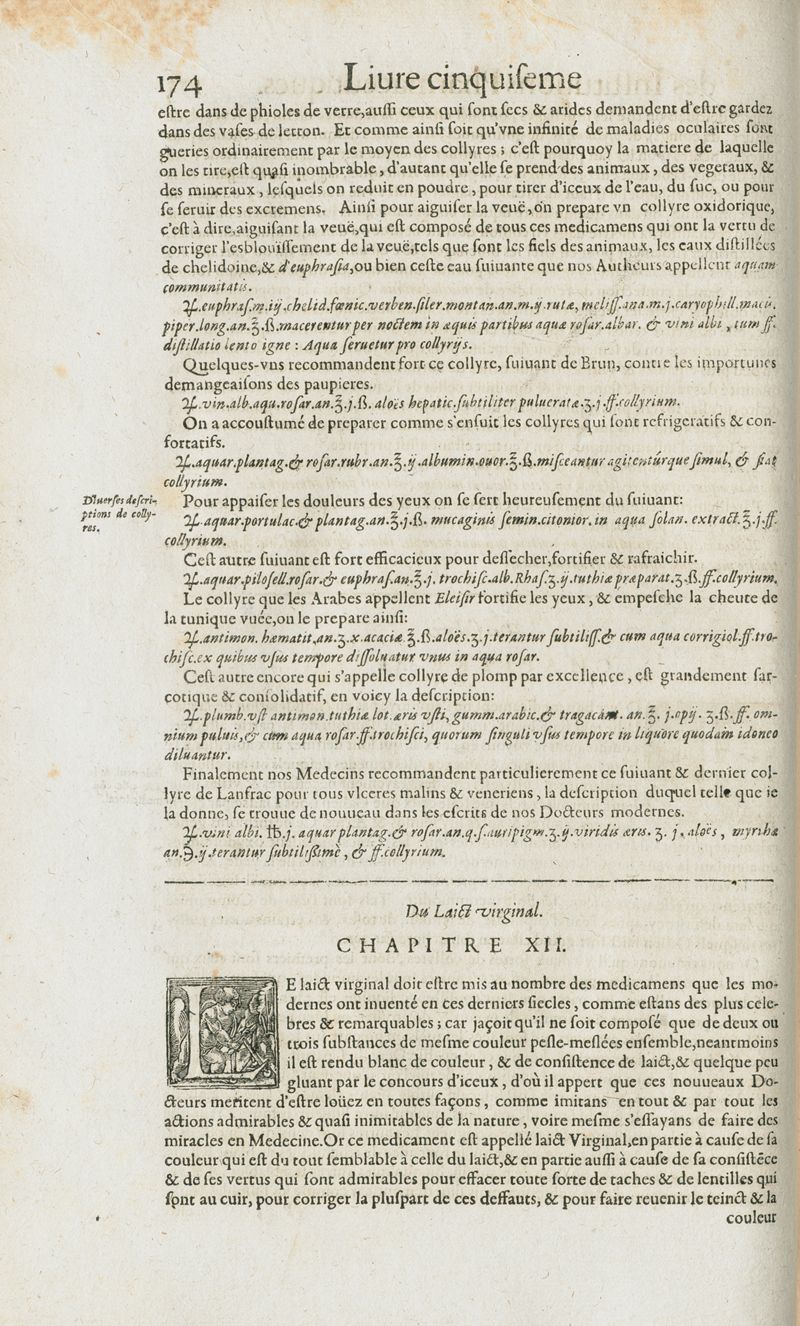 174 Liure cinquiſeme
eſtre dans de phioles de verre,auſſi ceux qui ſont ſecs & arides demandent d'eſtre gardez
dans des vaſes de letton. Et comme ainſi ſoit qu'vne infinité de maladies oculaires ſont
gueries ordinairement par le moyen des collyres ; c'eſt pourquoy la matiere de laquelle
on les tire,eſt quaſi inombrable, d'autant qu'elle ſe prend des animaux, des vegetaux, &
des mineraux, leſquels on reduit en poudre, pour tirer d'iceux de l'eau, du ſuc, ou pour
ſe ſeruir des excremens. Ainſi pour aiguiſer la veuë, on prepare vn collyre oxidorique,
c'eſt à dire,aiguiſant la veuë,qui eſt compoſé de tous ces medicamens qui ont la vertu de
corriger l'esblouiſſement de la veuë,tels que ſont les fiels des animaux, les eaux diſtillées
de chelidoine,& d'euphraſia,ou bien ceſte eau ſuiuante que nos Autheurs appellent aquam
communitatis.
♃.euphraſ.m.iij.chelid.fœnic.verben.ſiler.montan.an.m.ij.rutæ, meliſſ.ana.m.j.caryophill.macis,
piper.long.an.ʒ.ß.macerentur per noctem in æquis partibus aquæ roſar.albar. & vini albi, tum ff.
diſtillatio lento igne : Aqua ſeruetur pro collyrijs.
Quelques-vns recommandent fort ce collyre, ſuiuant de Brun, contre les importunes
demangeaiſons des paupieres.
♃.vin.alb.aqu.roſar.an.℥.j.ß. aloës hepatic.ſubtiliter pulueratæ.ʒ.j.ff.collyrium.
On a accouſtumé de preparer comme s'enſuit les collyres qui ſont refrigeratifs & con-
fortatifs.
♃.aquar.plantag.& roſar.rubr.an.℥.ij.albumin.ouor.℥.ß.miſceantur agitenturque ſimul, & fiat
collyrium.
Diuerſes deſcri-
ptions de colly-
res.
Pour appaiſer les douleurs des yeux on ſe ſert heureuſement du ſuiuant:
♃.aquar.portulac.& plantag.an.℥.j.ß. mucaginis ſemin.citonior.in aqua ſolan. extract.℥.j.ff.
collyrium.
Ceſt autre ſuiuant eſt fort efficacieux pour deſſecher,fortifier & rafraichir.
♃.aquar.piloſell.roſar.& euphraſ.an.℥.j. trochiſc.alb.Rhaſ.ʒ.ij.tuthiæ præparat.ʒ.ß.ff.collyrium.
Le collyre que les Arabes appellent Eleiſir fortifie les yeux, & empeſche la cheute de
la tunique vuée,on le prepare ainſi:
♃.antimon. hæmatit.an.ʒ.x.acaciæ.℥.ß.aloës.ʒ.j.terantur ſubtiliſſ.& cum aqua corrigiol.ff.tro-
chiſc.ex quibus vſus tempore diſſoluatur vnus in aqua roſar.
Ceſt autre encore qui s'appelle collyre de plomp par excellence, eſt grandement ſar-
cotique & conſolidatif, en voicy la deſcription:
♃.plumb.vſt antimon.tuthiæ lot.æris vſti, gumm.arabic.& tragacant. an.℥. j.opij. ʒ.ß.ff. om-
nium puluis,& cum aqua roſar.ff.trochiſci, quorum ſinguli vſus tempore in liquore quodam idoneo
diluantur.
Finalement nos Medecins recommandent particulierement ce ſuiuant & dernier col-
lyre de Lanfrac pour tous vlceres malins & veneriens, la deſcription duquel telle que ie
la donne, ſe trouue de nouueau dans les eſcrits de nos Docteurs modernes.
♃.vini albi. ℔.j. aquar plantag.& roſar.an.q.ſ.auripigm.ʒ.ij.viridis æris. ʒ. j, aloës, myrrhæ
an.℈.ij.terantur ſubtiliſſimè, & ff.collyrium.
Du Laict virginal.
CHAPITRE XII.
LE laict virginal doit eſtre mis au nombre des medicamens que les mo-
dernes ont inuenté en ces derniers ſiecles, comme eſtans des plus cele-
bres & remarquables ; car jaçoit qu'il ne ſoit compoſé que de deux ou
trois ſubſtances de meſme couleur peſle-meſlées enſemble,neantmoins
il eſt rendu blanc de couleur, & de conſiſtence de laict,& quelque peu
gluant par le concours d'iceux, d'où il appert que ces nouueaux Do-
cteurs meritent d'eſtre loüez en toutes façons, comme imitans en tout & par tout les
actions admirables & quaſi inimitables de la nature, voire meſme s'eſſayans de faire des
miracles en Medecine.Or ce medicament eſt appellé laict Virginal,en partie à cauſe de ſa
couleur qui eſt du tout ſemblable à celle du laict,& en partie auſſi à cauſe de ſa conſiſtẽce
& de ſes vertus qui ſont admirables pour effacer toute ſorte de taches & de lentilles qui
ſont au cuir, pour corriger la pluſpart de ces deffauts, & pour faire reuenir le teinct & la
couleur